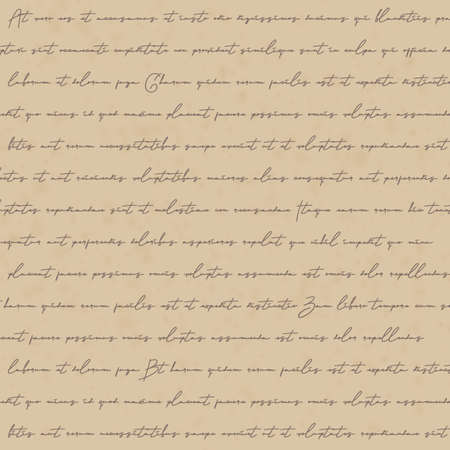 At vero eos et accusamus et iusto odio dignissimos ducimus qui blanditiis pra
sint occaecate cupiditate non provident similique sunt in culpa qui officia
laborum et dolorum fuga Gharum quidem rerum facilis est et expedita distinctio
est quo minus id quod maxime placeat facere possimus omnis voluptas assumenda
bitis aut rerum necessitatibus saepe eveniet ut et voluptates repudiandae sint et
ut aut reiciendis voluptatibus maiores alias consequatur aut perferendis
luptates repudiandae sint et molestiae non recusandae Itaque earum rerum hic tene
sequatur aut perferendis doloribus asperiores repellat quo nihil impedit quo minu
placeat facere possimus omnis voluptas assumenda est omnis dolor repellendus
harum quidem rerum facilis est et expedita distinctio Zum libero tempore cum so
facere possimus omnis voluptas assumenda est dolor repellendus
laborum et dolorum fuga Bt harum quidem rerum facilis est et expedita
est quo minus id quod maxime placeat facere possimus omnis voluptas assumenda
bitis aut rerum necessitatibus saepe eveniet ut et voluptates repudiandae sint et